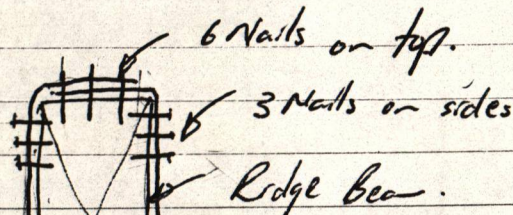 6 Nails on top.
3 Nails on sides
Ridge Bea